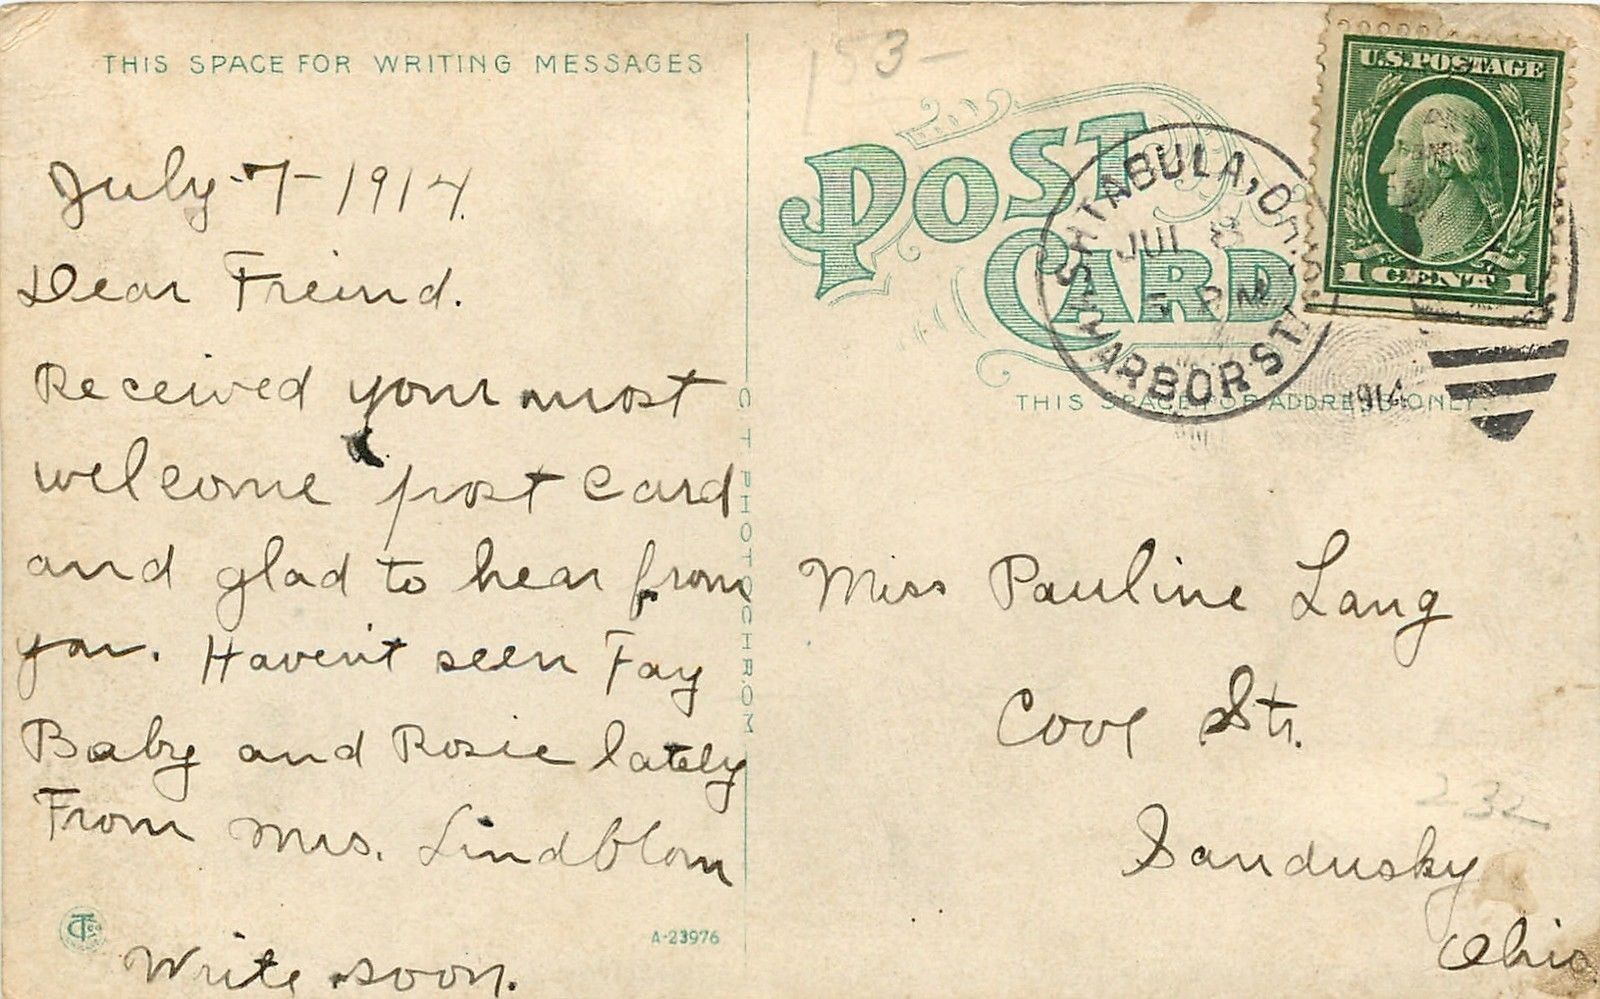 THIS SPACE FOR WRITING MESSAGES
July-7-1914.
Dear Freind.
Received your most
welcome post card
and glad to hear from
you. Haven't seen Fay
Baby and Rosie lately
From Mrs. Lindblom
Write soon.
A-23976
C T PHOTOCHROM
153-
POST
CARD
ASHTABULA, OHIO
JUL 8
PM
HARBOR STA
1914
U.S. POSTAGE
1 CENT 1
THIS SPACE FOR ADDRESS ONLY.
Miss Pauline Lang
Cove Str.
232
Sandusky
Ohio